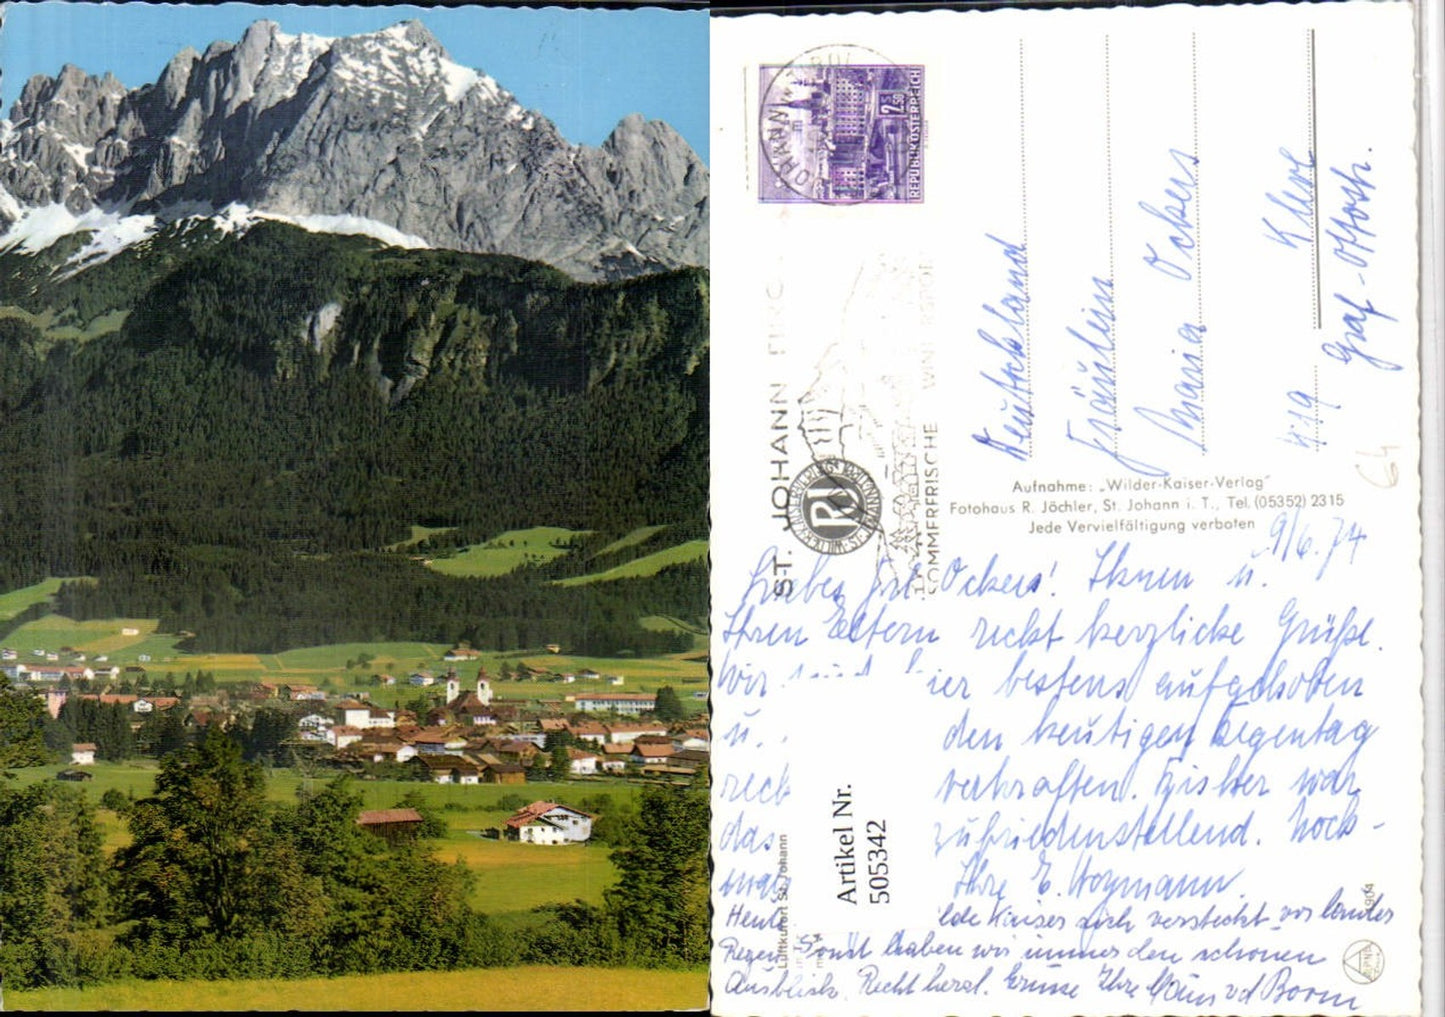 REPUBLIK ÖSTERREICH
2.50
ST. JOHANN
SOMMERFRISCHE
WINTERSPORT
Deutschland
Fräulein
Maria Ockers
419 Kleve
Graf-Ottostr.
64
Aufnahme: „Wilder-Kaiser-Verlag"
Fotohaus R. Jöchler, St. Johann i. T., Tel. (05352) 2315
Jede Vervielfältigung verboten
9/6. 74
Liebes Frl. Ockers! Ihnen u.
Ihren Eltern recht herzliche Grüße.
Wir sind hier bestens aufgehoben
u. den heutigen Regentag
verkraften. Bisher war
das zufriedenstellend. Hoch-
Ihre E. Hoymann.
Heute Kaiser sich versteckt vor lauter
Regen. Sonst haben wir immer den schönen
Ausblick. Recht herzl. Grüsse Ihre
Luftkurort St. Johann
Artikel Nr.
505342